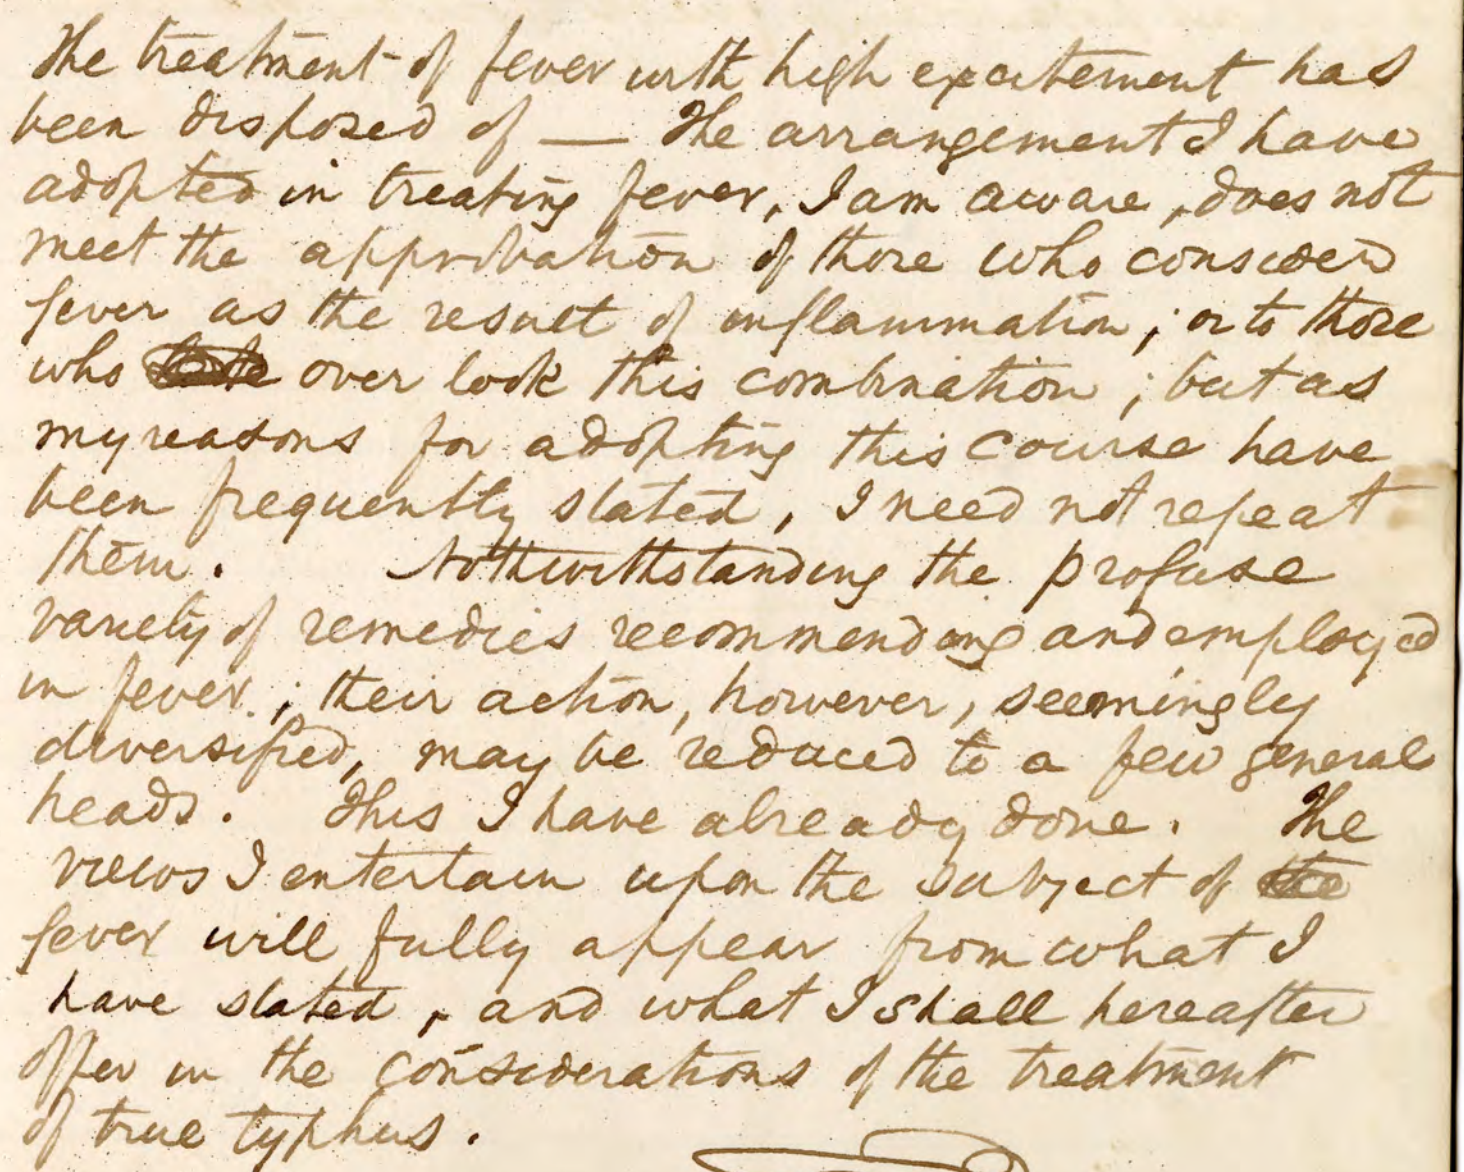 The treatment of fever with high excitement has
been disposed of — The arrangement I have
adopted in treating fever, I am aware, does not
meet the approbation of those who consider
fever as the result of inflammation; or to those
who over look this combination; but as
my reasons for adopting this course have
been frequently stated, I need not repeat
them. Nothwithstanding the profuse
variety of remedies recommending and employed
in fever; their action, however, seemingly
diversified, may be reduced to a few general
heads. This I have already done. The
views I entertain upon the subject of the
fever will fully appear from what I
have stated, and what I shall hereafter
offer in the considerations of the treatment
of true typhus.